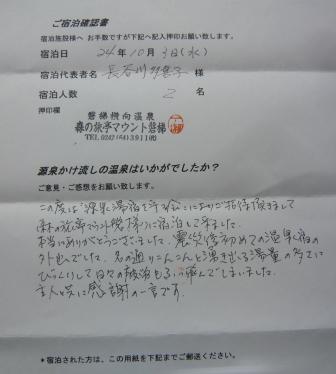 ご宿泊確認書
宿泊施設様へ お手数ですが下記へ記入押印お願い致します。
宿泊日 24年10月3日(水)
宿泊代表者名 長谷川 様
宿泊人数 2 名
押印欄
磐梯横向温泉
森の旅亭マウント磐梯
TEL 0242(64)3911㈹
源泉かけ流しの温泉はいかがでしたか?
ご意見・ご感想をお願い致します。
この度は「源泉湯宿を守る会」によりご招待頂きまして
森の旅亭マウント磐梯に宿泊して来ました。
本当にありがとうございました。震災後初めての温泉宿の
外出でした。名の通りこんこんと湧き出る湯量の多さに
びっくりして日々の疲れも 飛んでしまいました。
主人と共に感謝の一言です。
*宿泊された方は、この用紙を下記までご郵送ください。